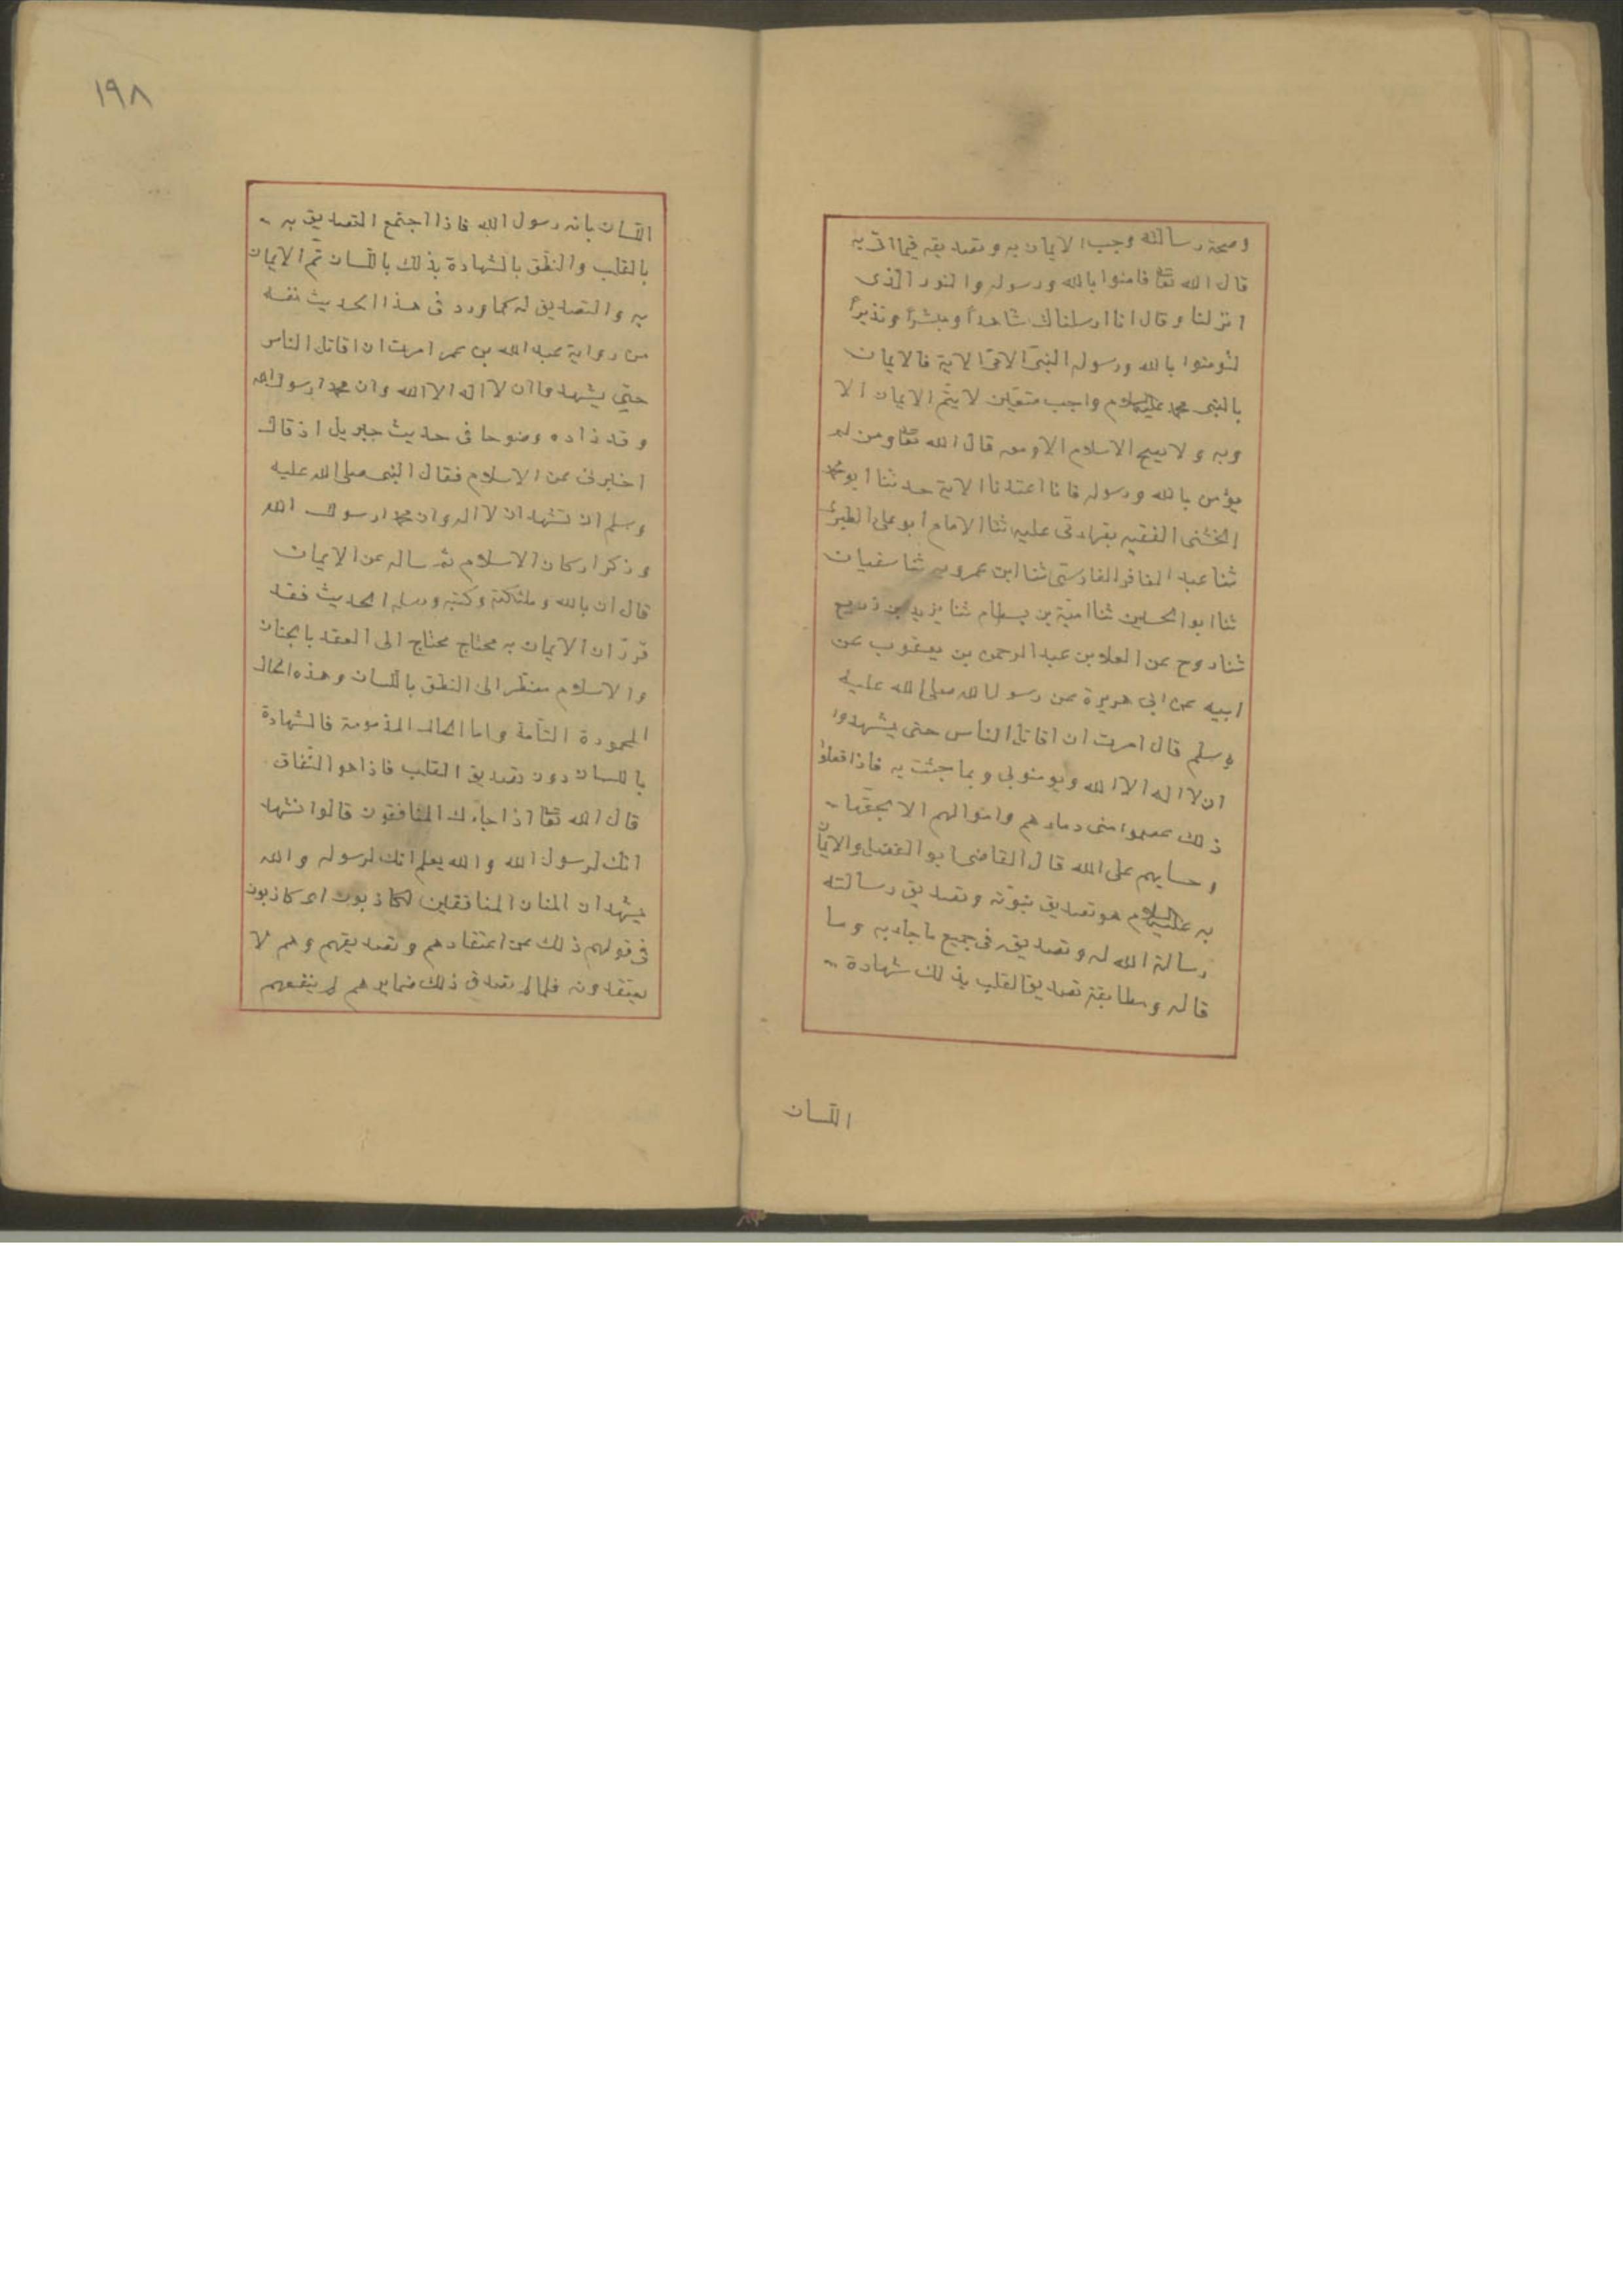 وصحة رسالته وجب الايمان به وتصديقه فيما اتى به
قال الله تعا فامنوا بالله ورسوله والنور الذى
انزلنا وقال انا ارسلناك شاهداً ومبشراً ونذيراً
لتومنوا بالله ورسوله النبىّ الامّى الاية فالايمان
بالنبى محمد عليه السلام واجب متعيّن لا يتمّ الايمان الا
وبه ولا يصح الاسلام الا ومعه قال الله تعا ومن لم
يؤمن بالله ورسوله فانا اعتدنا الاية حدثنا ابو محمد
الخشنى الفقيه بقراءتى عليه ثنا الامام ابو على الطبرى
ثنا عبد الغافر الفارسىّ ثنا ابن عمرويه ثنا سفيان
ثنا ابو الحسين ثنا اميّة بن بسطام ثنا يزيد بن زريع
ثنا روح عن العلا بن عبد الرحمن بن يعقوب عن
ابيه عن ابى هريرة عن رسول الله صلى الله عليه
وسلم قال امرت ان اقاتل الناس حتى يشهدوا
ان لا اله الا الله ويومنوبى وبما جئت به فاذا فعلوا
ذلك عصموا منى دماءهم واموالهم الا بحقّها
وحسابهم على الله قال القاضى ابو الفضل والايمان
به عليه السلام هو تصديق نبوّته وتصديق رسالته
رسالة الله له وتصديقه فى جميع ما جاء به وما
قاله ومطابقة تصديق القلب بذلك شهادة
اللّسان
١٩٨
اللّسان بانه رسول الله فاذا اجتمع التصديق به
بالقلب والنطق بالشهادة بذلك باللّسان تمّ الايمان
به والتصديق له كما ورد فى هذا الحديث نفسه
من رواية عبد الله بن عمر امرت ان اقاتل الناس
حتى يشهدوا ان لا اله الا الله وان محمدا رسول الله
وقد زاده وضوحا فى حديث جبريل اذ قال
اخبرنى عن الاسلام فقال النبى صلى الله عليه
وسلم ان تشهد ان لا اله وان محمدا رسول الله
وذكر اركان الاسلام ثم ساله عن الايمان
قال ان بالله وملئكته وكتبه ورسله الحديث فقد
قرّر ان الايمان به محتاج محتاج الى العقد بالجنان
والاسلام مضطّر الى النطق باللسان وهذه الحال
المحمودة التّامة واما الحال المذمومة فالشهادة
باللسان دون تصديق القلب فاذا هو النّفاق
قال الله تعا اذا جاءك المنافقون قالوا نشهد
انك لرسول الله والله يعلم انك لرسوله والله
يشهد ان المنان المنافقين لكاذبون اى كاذبون
فى قولهم ذلك عن اعتقادهم وتصديقهم وهم لا
يعتقدونه فلما لم تصدق ذلك ضمايرهم لم ينفعهم